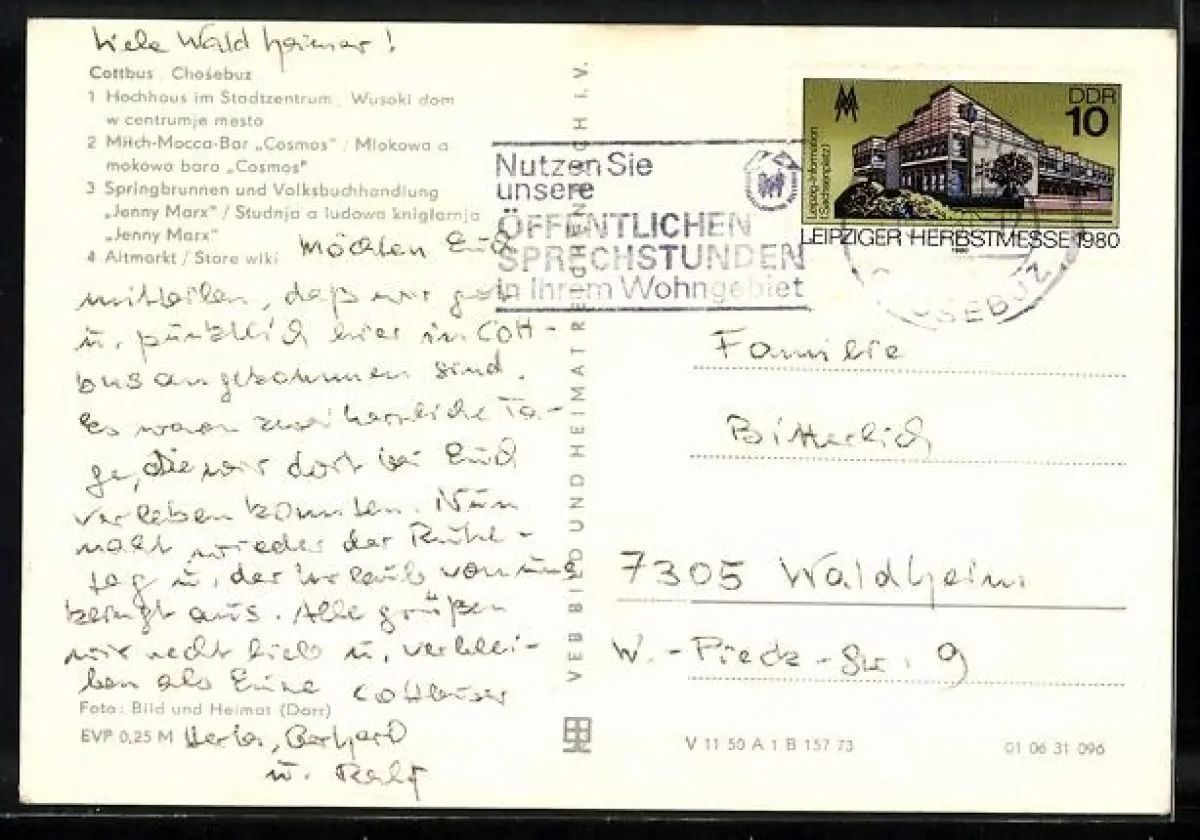 Liebe Waldheimer!
Cottbus / Chośebuz
1 Hochhaus im Stadtzentrum / Wusoki dom
w centrumje mesta
2 Milch-Mocca-Bar „Cosmos" / Mlokowa a
mokowa bara „Cosmos"
3 Springbrunnen und Volksbuchhandlung
„Jenny Marx" / Studnja a ludowa kniglarnja
„Jenny Marx"
4 Altmarkt / Stare wiki
Möchten Euch
mitteilen, daß wir gut
u. pünktlich hier in Cott-
bus angekommen sind.
Es waren zwei herrliche Ta-
ge, die wir dort bei Euch
verleben konnten. Nun
naht wieder der
tag u. der Urlaub von uns
klingt aus. Alle grüßen
wir recht lieb u. verblei-
ben als Eure Cottbuser
Foto: Bild und Heimat (Darr)
EVP 0,25 M
Herta, Gerhard
u. Ralf
VEB BILD UND HEIMAT REICHENBACH I. V.
Nutzen Sie
unsere
ÖFFENTLICHEN
SPRECHSTUNDEN
in Ihrem Wohngebiet
DDR
10
Leipzig-Information
(Sachsenplatz)
LEIPZIGER HERBSTMESSE 1980
1980
Familie
Bitterlich
7305 Waldheim
W.-Pieck-Str. 9
V 11 50 A 1 B 157 73
01 06 31 096